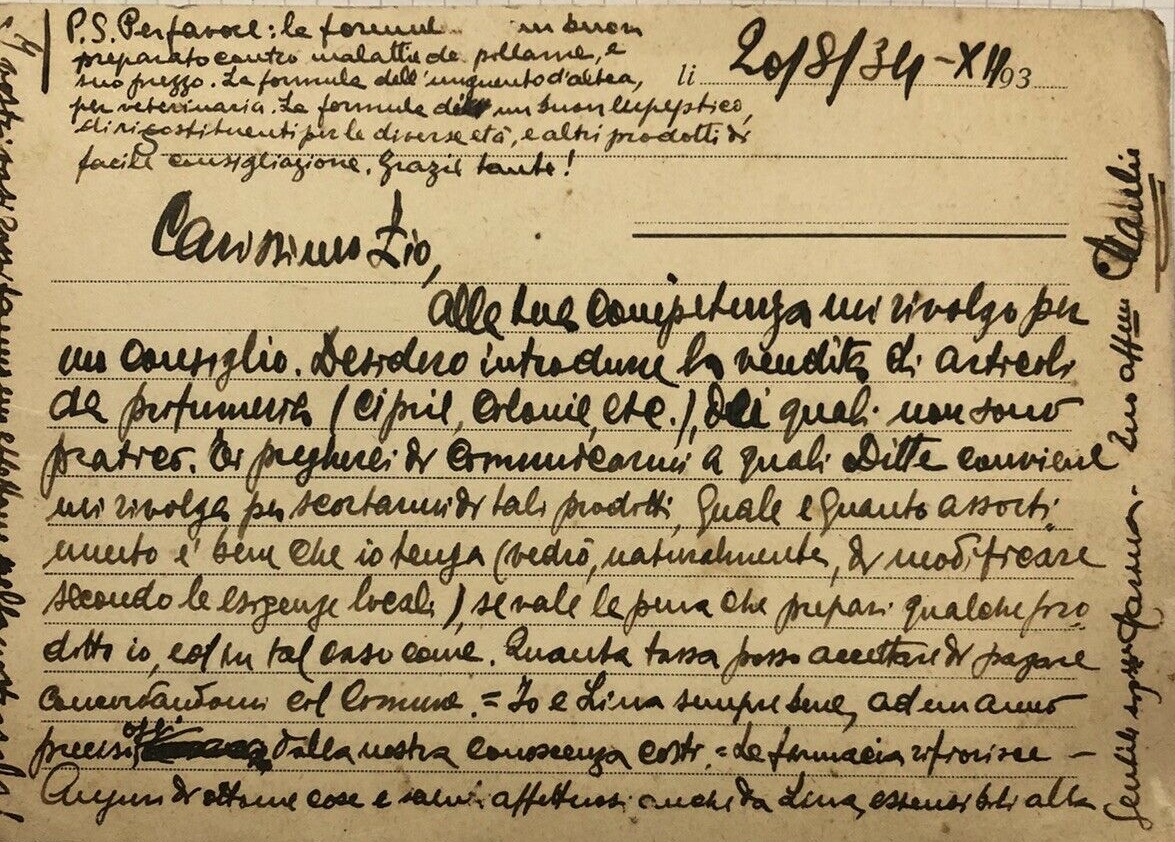 P.S. Per favore: la formula in buon
preparato contro malattie de pollame, e
suo prezzo. La formula dell'unguento d'altea,
per veterinaria. La formula di un buon eupeptico,
di ricostituenti per le diverse età, e altri prodotti di
facile consigliazione. Grazie tante!
li 20/8/34-XII 193
Carissimo Zio,
alla tua competenza mi rivolgo per
un consiglio. Desidero introdurre la vendita di articoli
da profumeria (ciprie, colonie, etc.), dei quali non sono
pratico. Ti pregherei di comunicarmi a quali Ditte conviene
mi rivolga per scortarmi di tali prodotti, quale e quanto assorti-
mento e' bene che io tenga (vedrò, naturalmente, di modificare
secondo le esigenze locali), se vale la pena che prepari qualche pro-
dotto io, ed in tal caso come. Quanta tassa posso accettare di pagare
concordandomi col Comune. = Io e Lina sempre bene, ad un anno
precisi, oggi dalla nostra conoscenza costì. = La farmacia rifiorisce -
Auguri di ottime cose e saluti affettuosi anche da Lina, estensibili alla
Gentile signora Tuo aff.mo Manlio